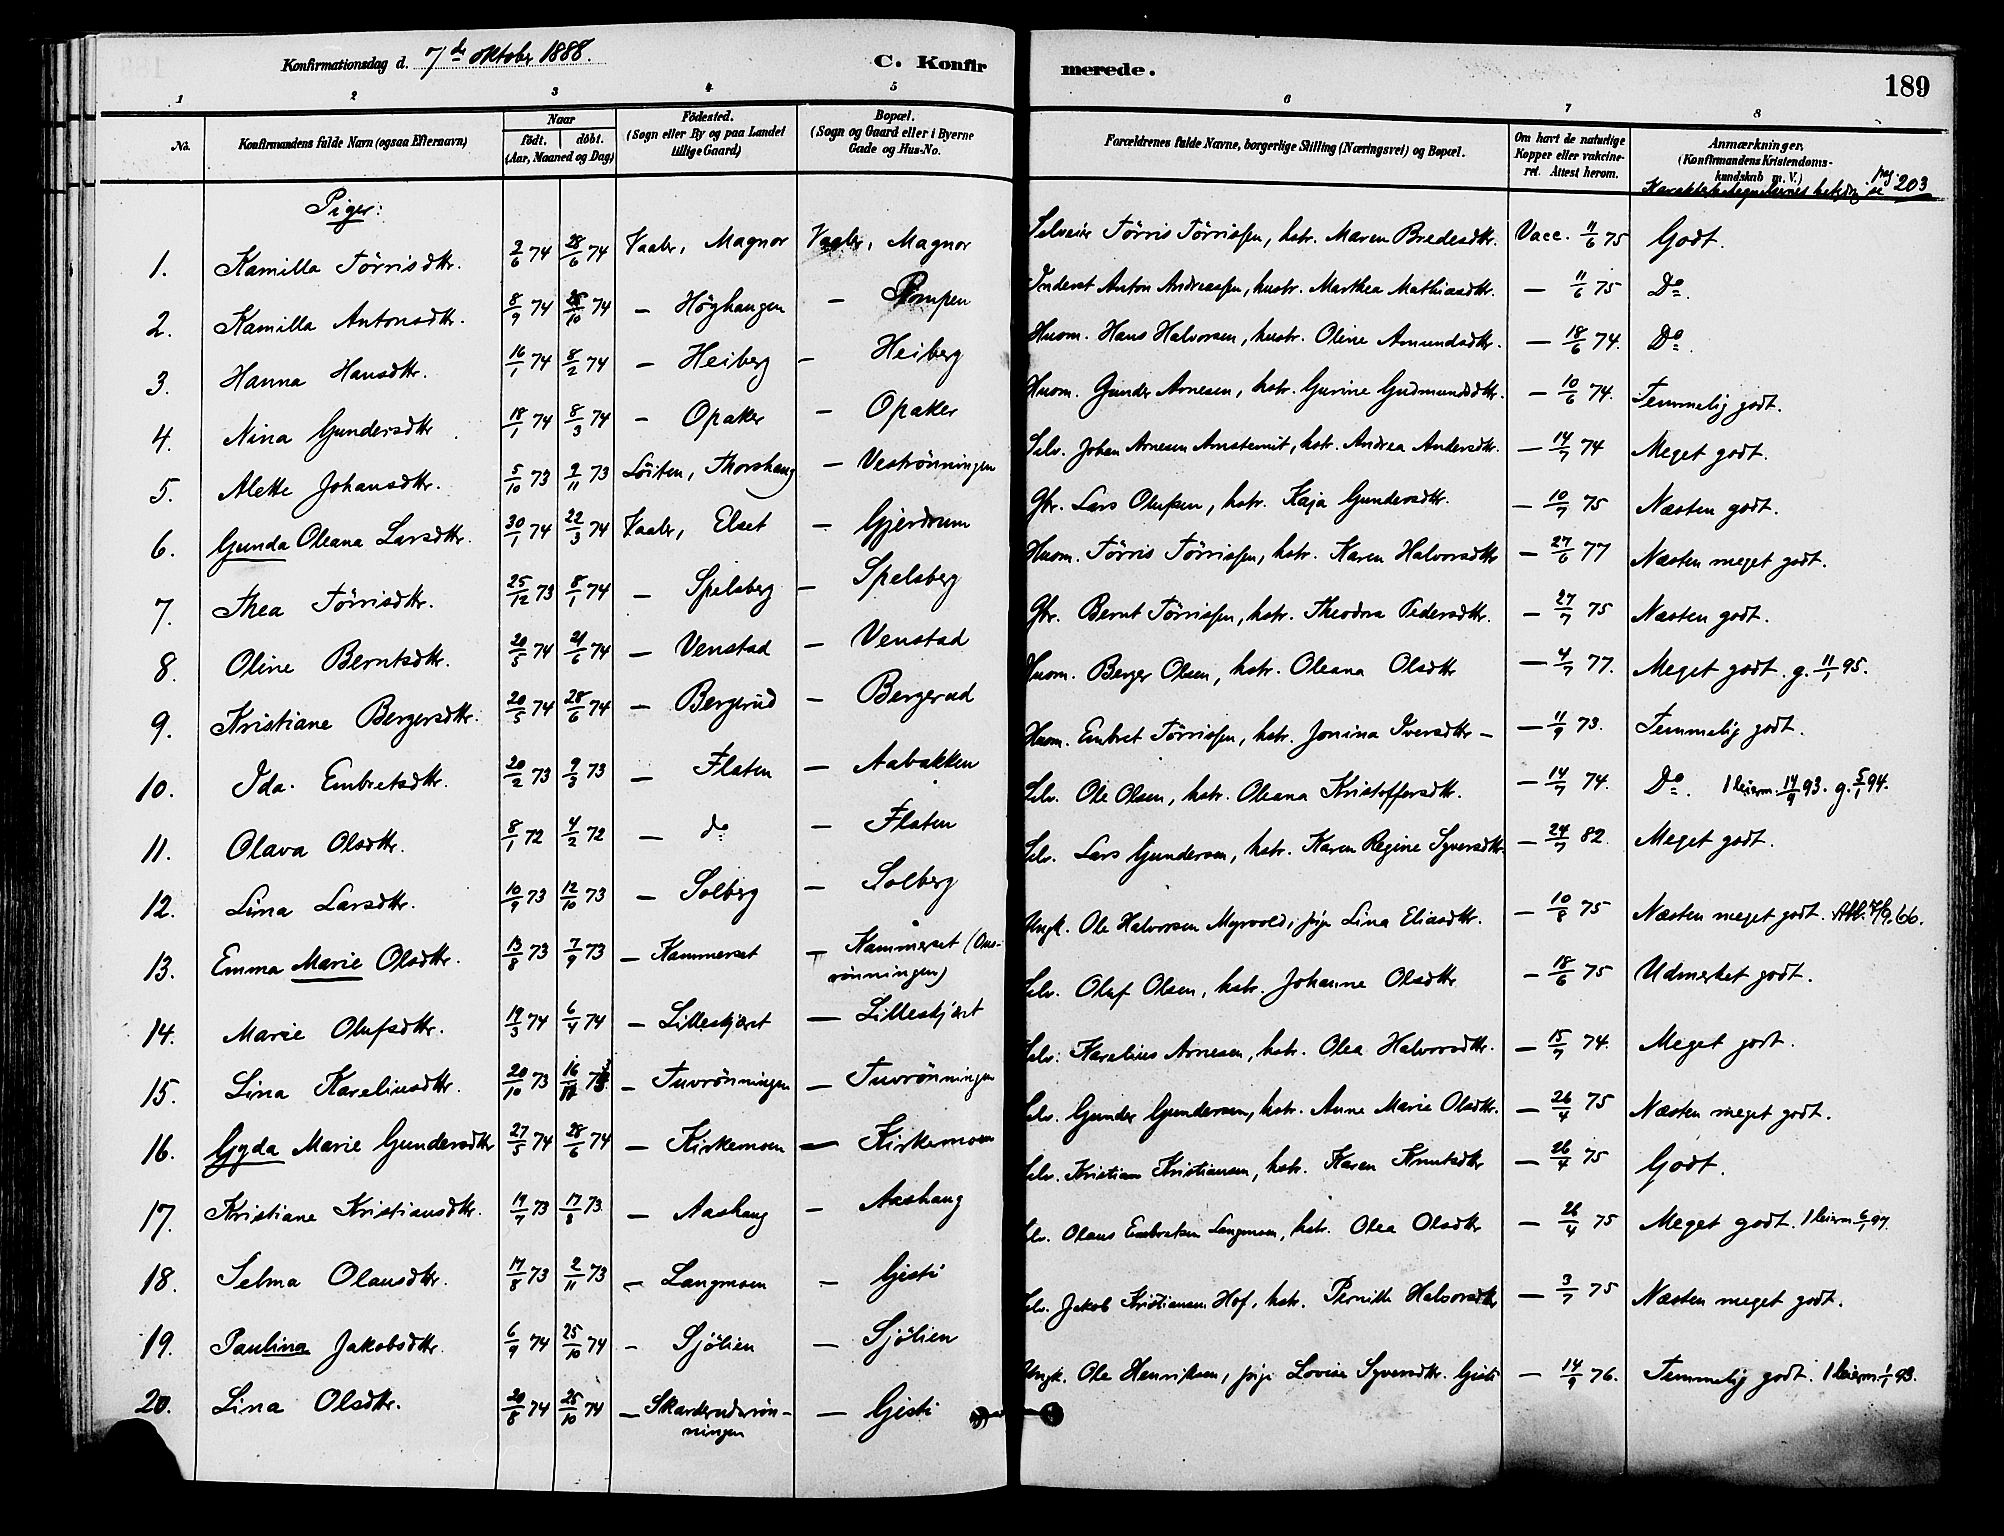 Konfirmationsdag d. 7de oktober 1888.
C. Konfirmerede.
189
1 2 3 4 5 6 7 8
No. Konfirmandens fulde Navn (ogsaa Efternavn) Naar født. døbt. (Aar, Maaned og Dag) Födested. (Sogn eller By og paa Landet tillige Gaard) Bopæl. (Sogn og Gaard eller i Byerne Gade og Hus-No. Forældrenes fulde Navne, borgerlige Stilling (Næringsvei) og Bopæl. Om havt de naturlige Kopper eller vakcineret. Attest herom. Anmærkninger. (Konfirmandens Kristendomskundskab m. V.)
pag. 203
Piger:
1. Kamilla Törrisdtr. 2/6 74 28/6 74 Vaaler, Magnor Vaaler, Magnor Selveier Törris Törrissen, hstr. Maren Bredesdtr. Vacc. 11/6 75 Godt.
2. Kamilla Antonsdtr. 8/9 74 25/10 74 — Höghaugen — Pompen Inderst Anton Andreassen, hustr. Marthea Mathiasdtr. — 11/6 75 Do.
3. Hanna Hansdtr. 16/1 74 8/2 74 — Heiberg — Heiberg Husm. Hans Halvorsen, hustr. Oline Amundsdtr. — 18/6 74. Do.
4. Nina Gundersdtr. 18/1 74 8/3 74 — Opaker — Opaker Husm. Gunder Arnesen, hstr. Gurine Gudmundsdtr. — 10/6 74. Temmelig godt.
5. Alette Johansdtr. 5/10 73 9/11 73 Löiten, Thorshaug — Veströnningen Selv. Johan Arnesen Arnstemit, hstr. Andrea Andersdtr. — 14/7 74 Meget godt.
6. Gunda Oleana Larsdtr. 30/1 74 22/3 74 Vaaler, Elset — Gjerdrum Gbr. Lars Olufsen, hstr. Kaja Gundersdtr. — 10/7 75 Næsten godt.
7. Thea Törrisdtr. 25/12 73 8/1 74 — Spelsberg — Spelsberg Husm. Törris Törrissen, hstr. Karen Halvorsdtr — 27/6 77 Næsten meget godt.
8. Oline Berntsdtr. 20/5 74 21/6 74 — Venstad — Venstad Gbr. Bernt Törrissen, hstr. Theodora Pedersdtr. — 27/7 75 Næsten godt.
9. Kristiane Bergersdtr. 20/5 74 28/6 74 — Bergerud — Bergerud Husm. Berger Olsen, hstr. Oleana Olsdtr — 4/7 77. Meget godt. g. 11/1 95.
10. Ida Embretsdtr. 20/2 73 9/3 73 — Flaten — Aabakken Husm. Embret Törrissen, hstr. Jonina Iversdtr — — 11/9 73. Temmelig godt.
11. Olava Olsdtr. 8/1 72 4/2 72 — do — Flaten Selv. Ole Olsen, hstr. Oleana Kristoffersdtr. — 14/7 74. Do. 1 leierm. 14/9 93. g. 5/1 94.
12. Lina Larsdtr. 10/9 73 12/10 73 — Solberg — Solberg Selv. Lars Gundersen, hstr. Karen Regine Syversdtr. — 24/7 82. Meget godt.
13. Emma Marie Olsdtr. 13/8 73 7/9 73 — Kammerset — Kammerset (Onsrönningen) Ungk. Ole Halvorsen Myrvold, pige Lina Eliasdtr. — 10/8 75 Næsten meget godt.
14. Marie Olufsdtr. 19/3 74 6/4 74 — Lilleskjæret — Lilleskjæret Selv. Oluf Olsen, hstr. Johanne Olsdtr — 18/6 75 Udmerket godt.
15. Lina Kareliusdtr. 20/10 73 16/11 73 — Tuvrönningen — Tuvrönningen Selv. Karelius Arnesen, hstr. Olea Halvorsdtr. — 15/7 74. Meget godt.
16. Gyda Marie Gundersdtr 27/5 74 28/6 74 — Kirkemoen — Kirkemoen Selv. Gunder Gundersen, hstr. Anne Marie Olsdtr. — 26/4 75 Næsten meget godt.
17. Kristiane Kristiansdtr. 19/7 73 17/8 73 — Aashaug — Aashaug Selv. Kristian Kristiansen, hstr. Karen Knutsdtr — 26/4 75 Godt.
18. Selma Olausdtr. 17/8 73 2/11 73 — Langmoen — Gjesti Selv. Olaus Embretsen Langmoen, hstr. Olea Olsdtr — 26/4 75 Meget godt. 1 leierm. 6/1 97.
19. Paulina Jakobsdtr. 6/9 74 25/10 74 — Sjölien — Sjölien Selv. Jakob Kristiansen Hof, hstr. Pernille Halvorsdtr — 3/7 75 Næsten meget godt.
20. Lina Olsdtr. 20/8 74 25/10 74 — Skarderudsrönningen — Gjesti Ungk. Ole Henriksen, pige Lovise Syversdtr. Gjesti — 14/9 76. Temmelig godt. 1 leierm 1/1 93.